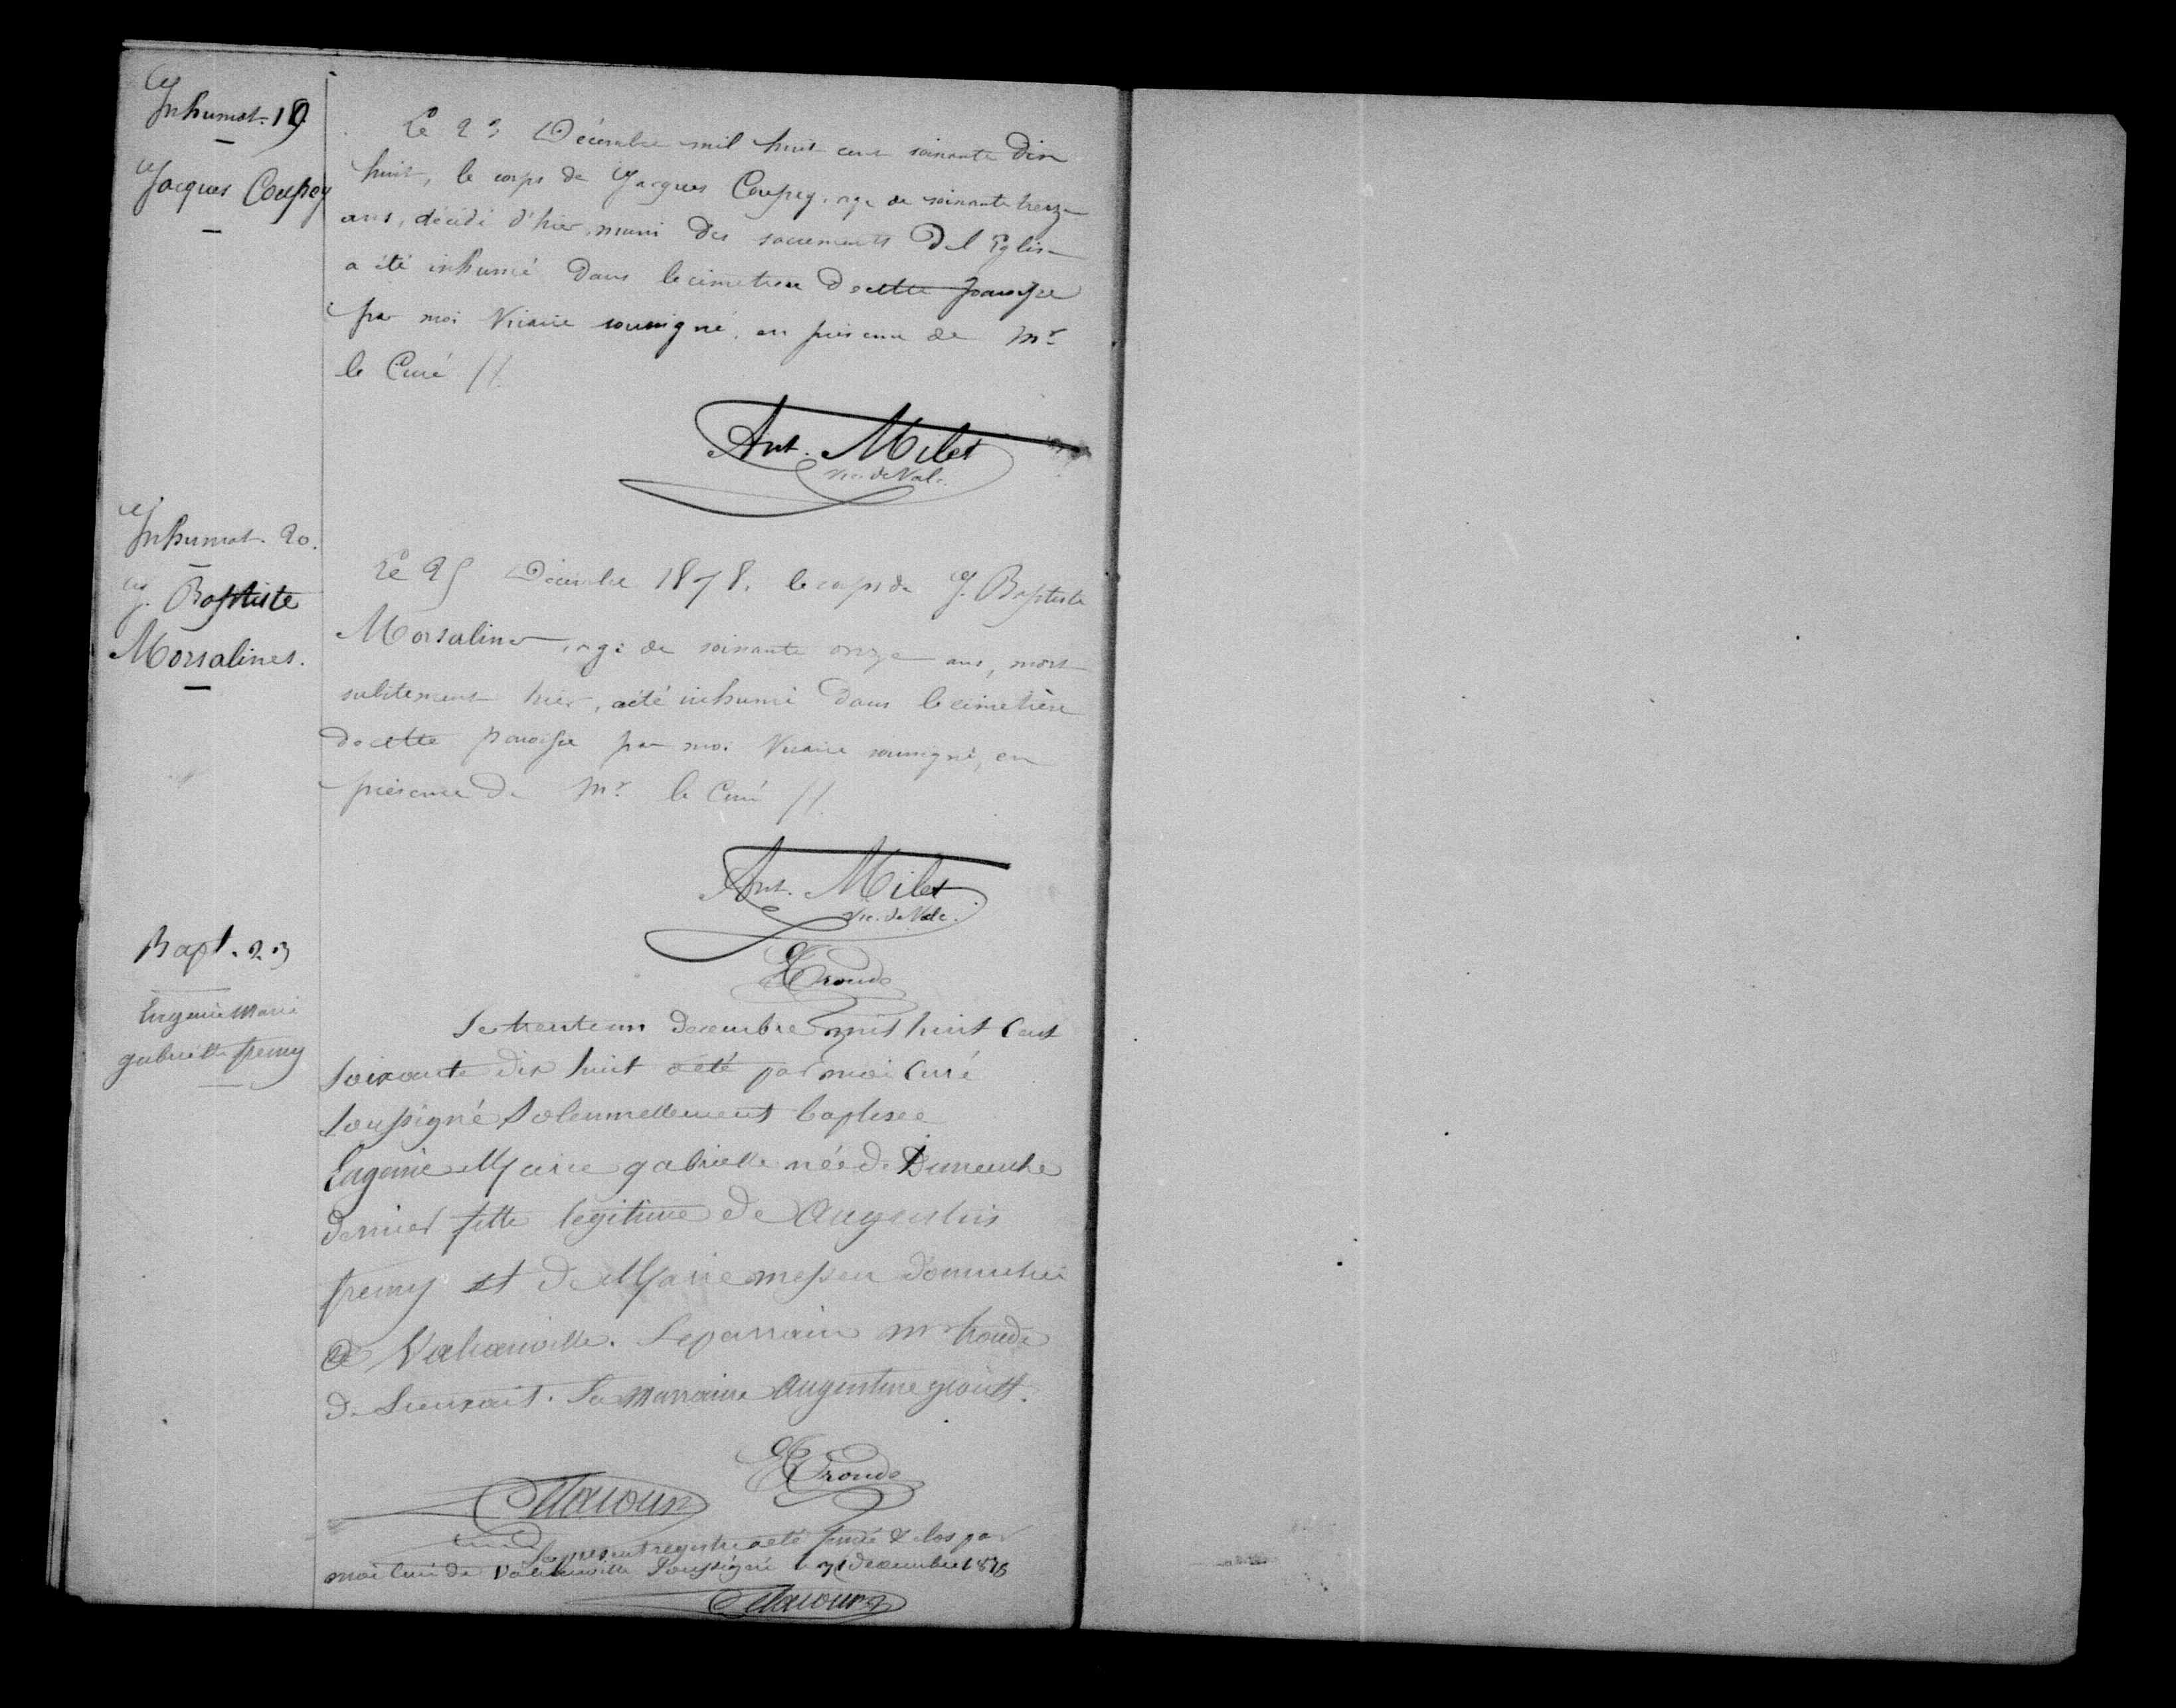 Inhumat. 19
Jacques Coupey
Le 23 Décembre mil huit cent soixante dix
huit, le corps de Jacques Coupey, agé de soixante treize
ans, décédé d'hier, muni des sacrements de l'Eglise
a été inhumé dans le cimetière de cette paroisse
par moi Vicaire soussigné, en présence de Mr
le Curé //.
Ant. Milet
vic. de Valc.
Inhumat. 20.
J. Baptiste
Morsalines.
Le 25 Décembre 1878. le corps de J. Baptiste
Morsalines, agé de soixante onze ans, mort
subitement hier, a été inhumé dans le cimetière
de cette paroisse par moi Vicaire soussigné, en
présence de Mr le Curé //.
Ant. Milet
Vic. de Valc.
Troude
Bapt. 23
Eugenie Marie
gabrielle fremy
Le trente un decembre mil huit cent
soixante dix huit a été par moi Curé
soussigné solennellement baptisée
Eugenie Marie gabrielle née de Dimanche
dernier fille legitime de Augustin
fremy et de Marie domicilié
de Valcanville. Le parrain mr troude
de Lieusaint. La marraine Augustine
Troude
Le present registre a été fermé & clos par
moi Curé de Valcanville soussigné le 31 decembre 1878